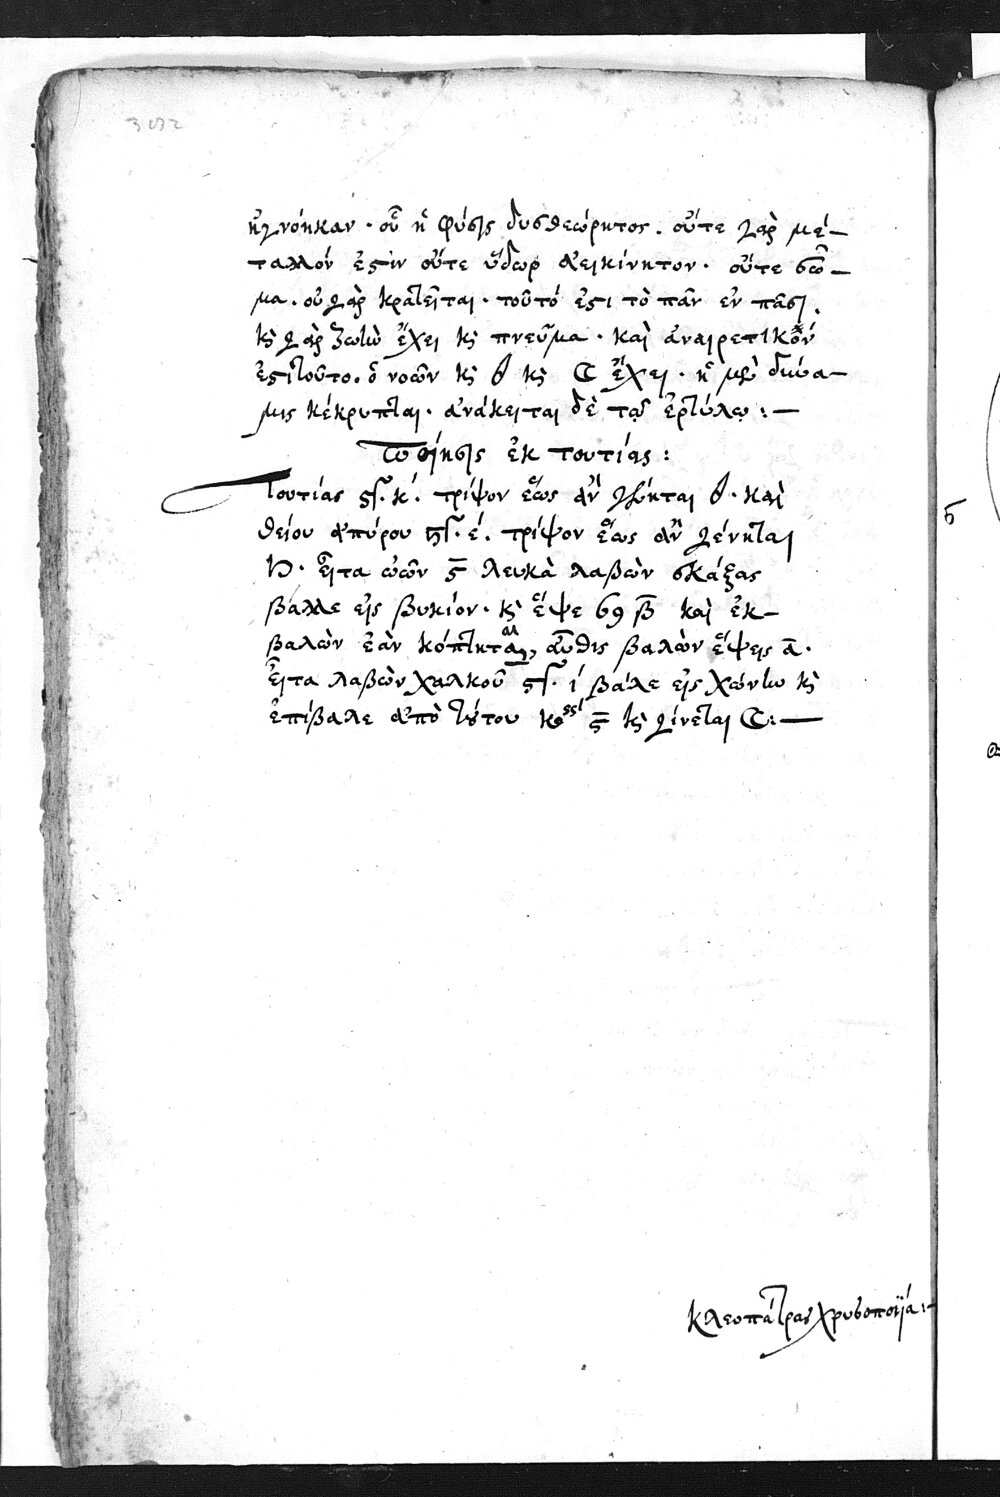 ἠγνόηκαν · οὗ ἡ φύσις δυσθεώρητος · οὔτε γὰρ μέ–
ταλλόν ἐστιν οὔτε ὕδωρ ἀεικίνητον · οὔτε σῶ–
μα · οὐ γὰρ κρατεῖται · τοῦτό ἐστι τὸ πᾶν ἐν πᾶσι .
κϛ γὰρ ζωὴν ἔχει κϛ πνεῦμα · καὶ ἀναιρετικόν
ἐστι τοῦτο · ὁ νοῶν κϛ κϛ ☾ ἔχει · ἡ μὲν δύνα–
μις κέκρυπται · ἀνάκειται δὲ τῷ ἐρωτύλῳ :—
ποίησις ἐκ τουτίας :
Τουτίας κ΄. τρίψον ἕως ἂν γένηται · καὶ
θείου ἀπύρου ε΄. τρίψον ἕως ἂν γένηται
εἶτα ὠῶν ϛ λευκὰ λαβὼν
βάλλε εἰς βυκίον · κϛ ἕψε β καὶ ἐκ–
βαλὼν ἐὰν αὖθις βαλὼν ἕψεις α ·
Εἶτα λαβὼν χαλκοῦ ί βάλε εἰς χώνην κϛ
ἐπίβαλε ἀπὸ τούτου ϛ κϛ γίνεται ☾:—
Κλεοπάτρας χρυσοποιΐα :–